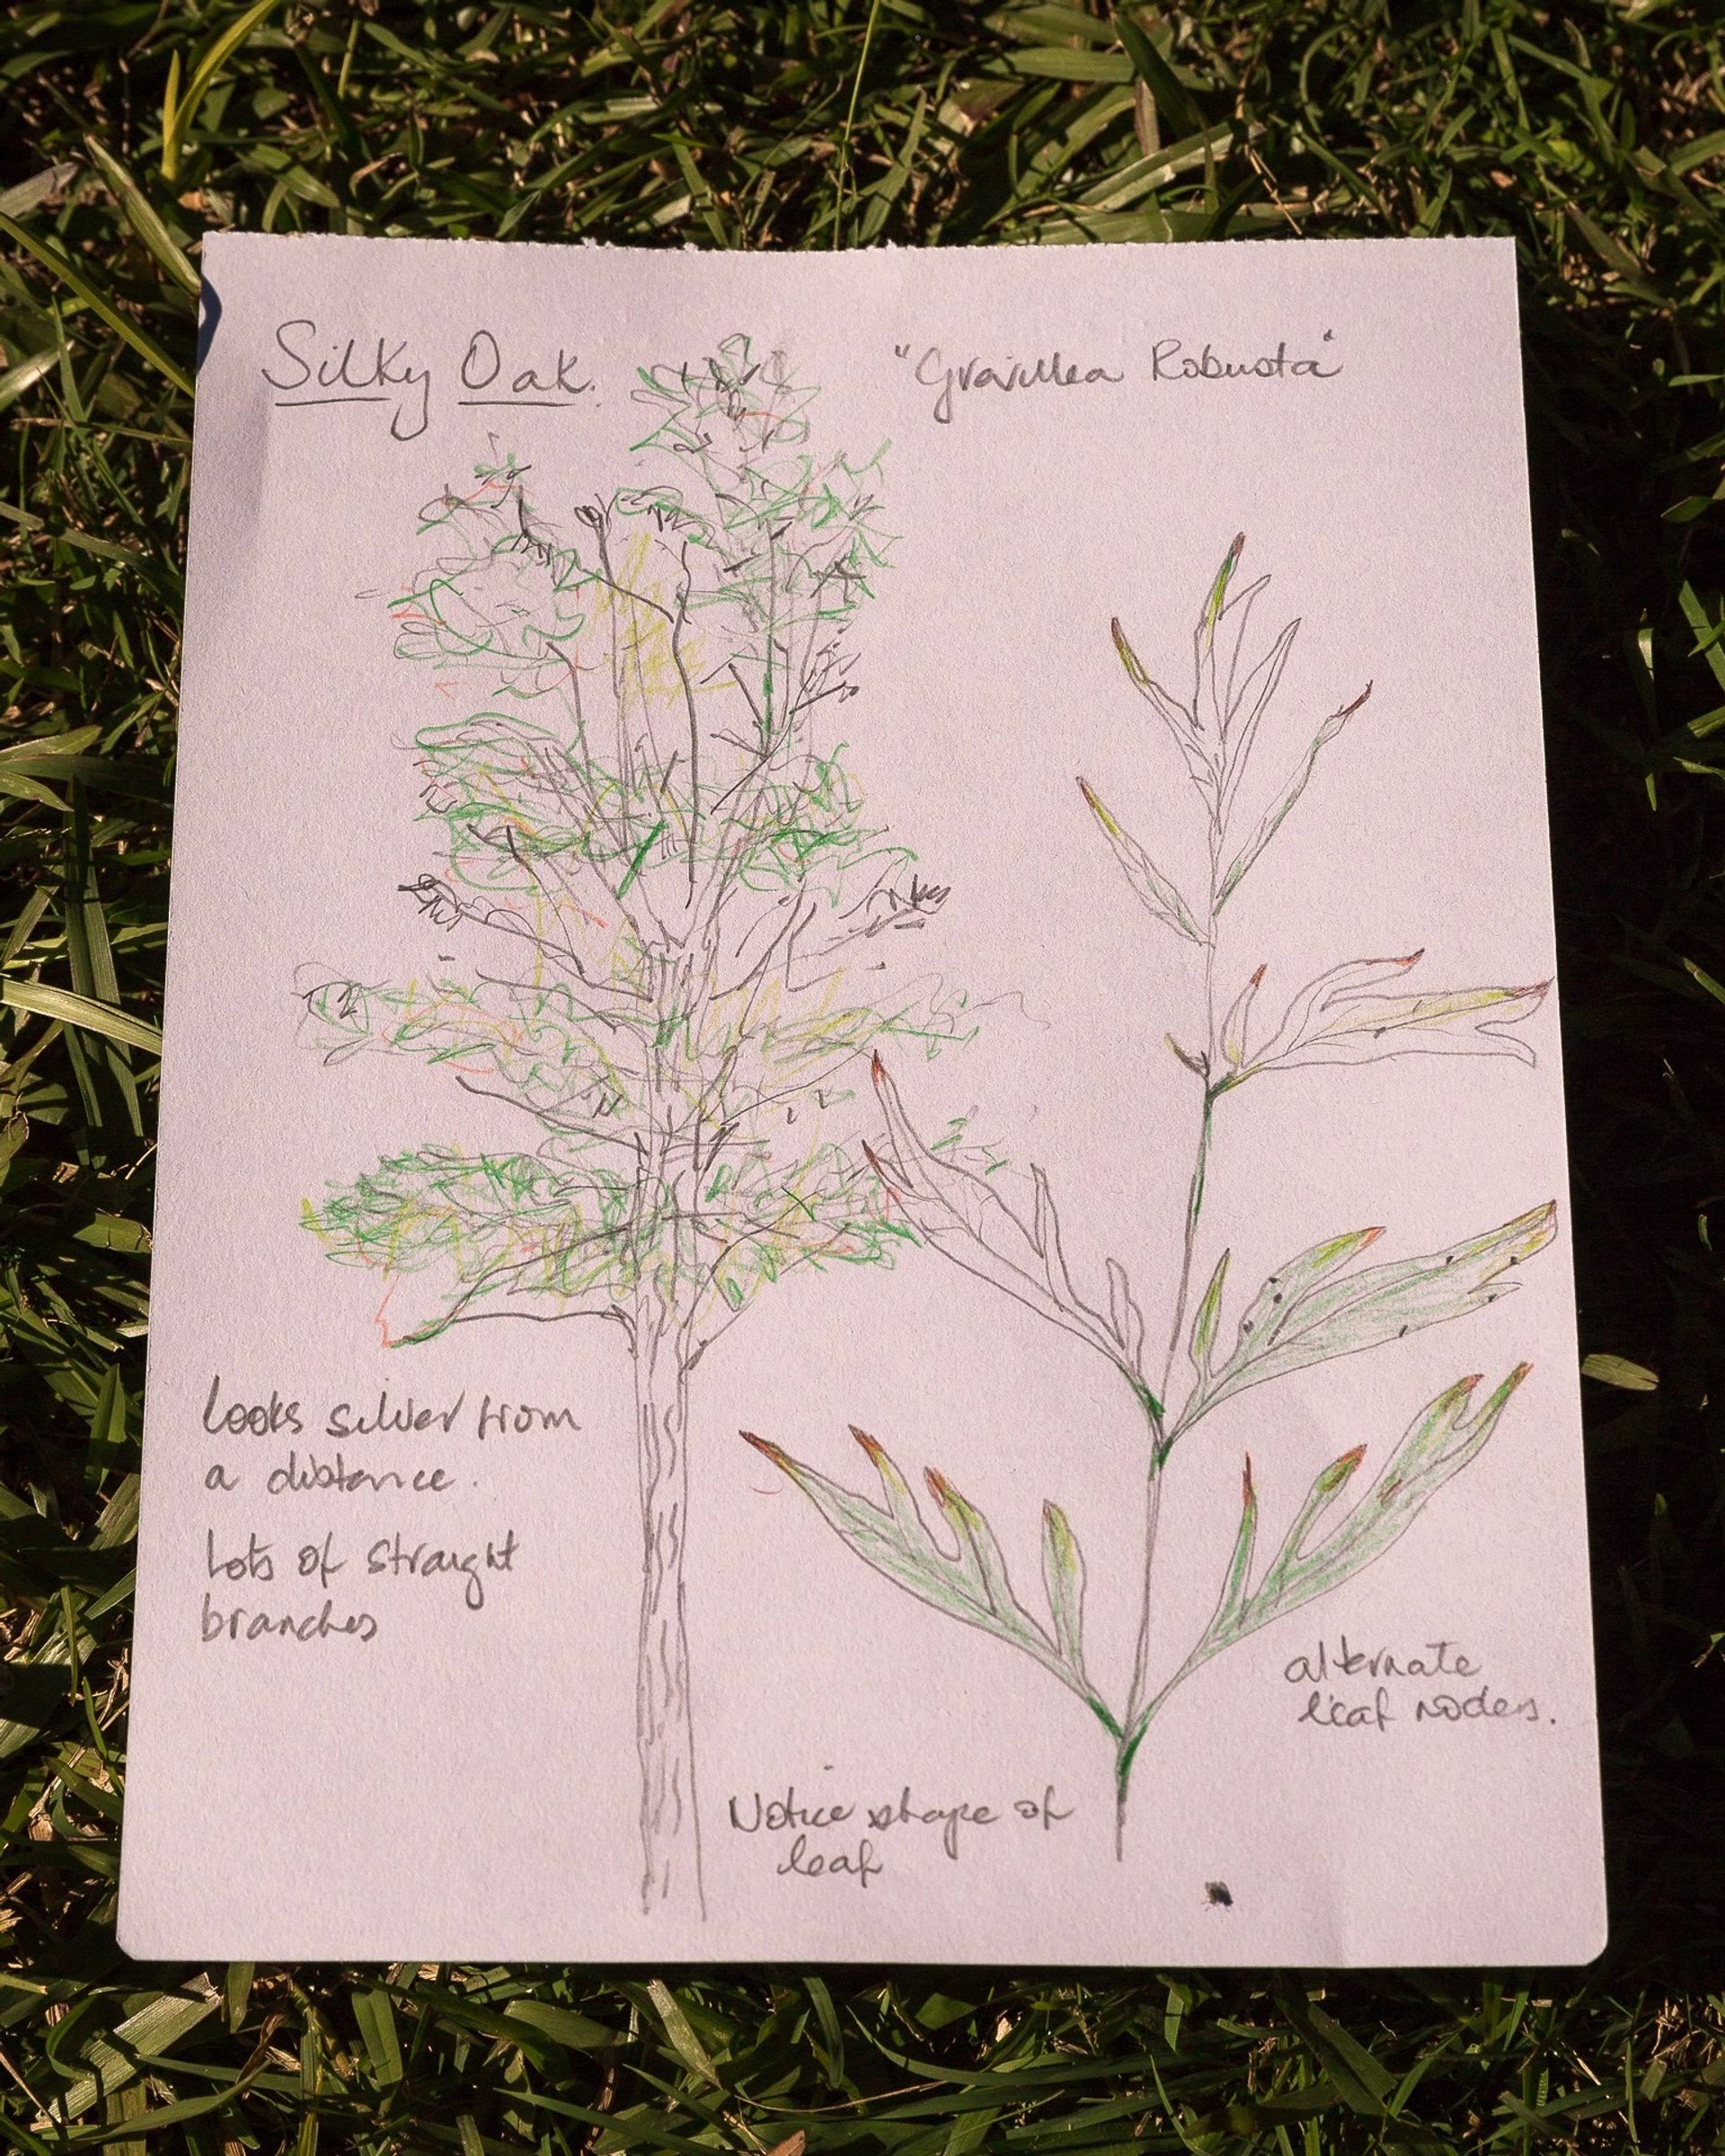 Silky Oak.
"Gravillea Robusta"
Looks silver from
a distance.
Lots of straight
branches
alternate
leaf nodes.
Notice shape of
leaf